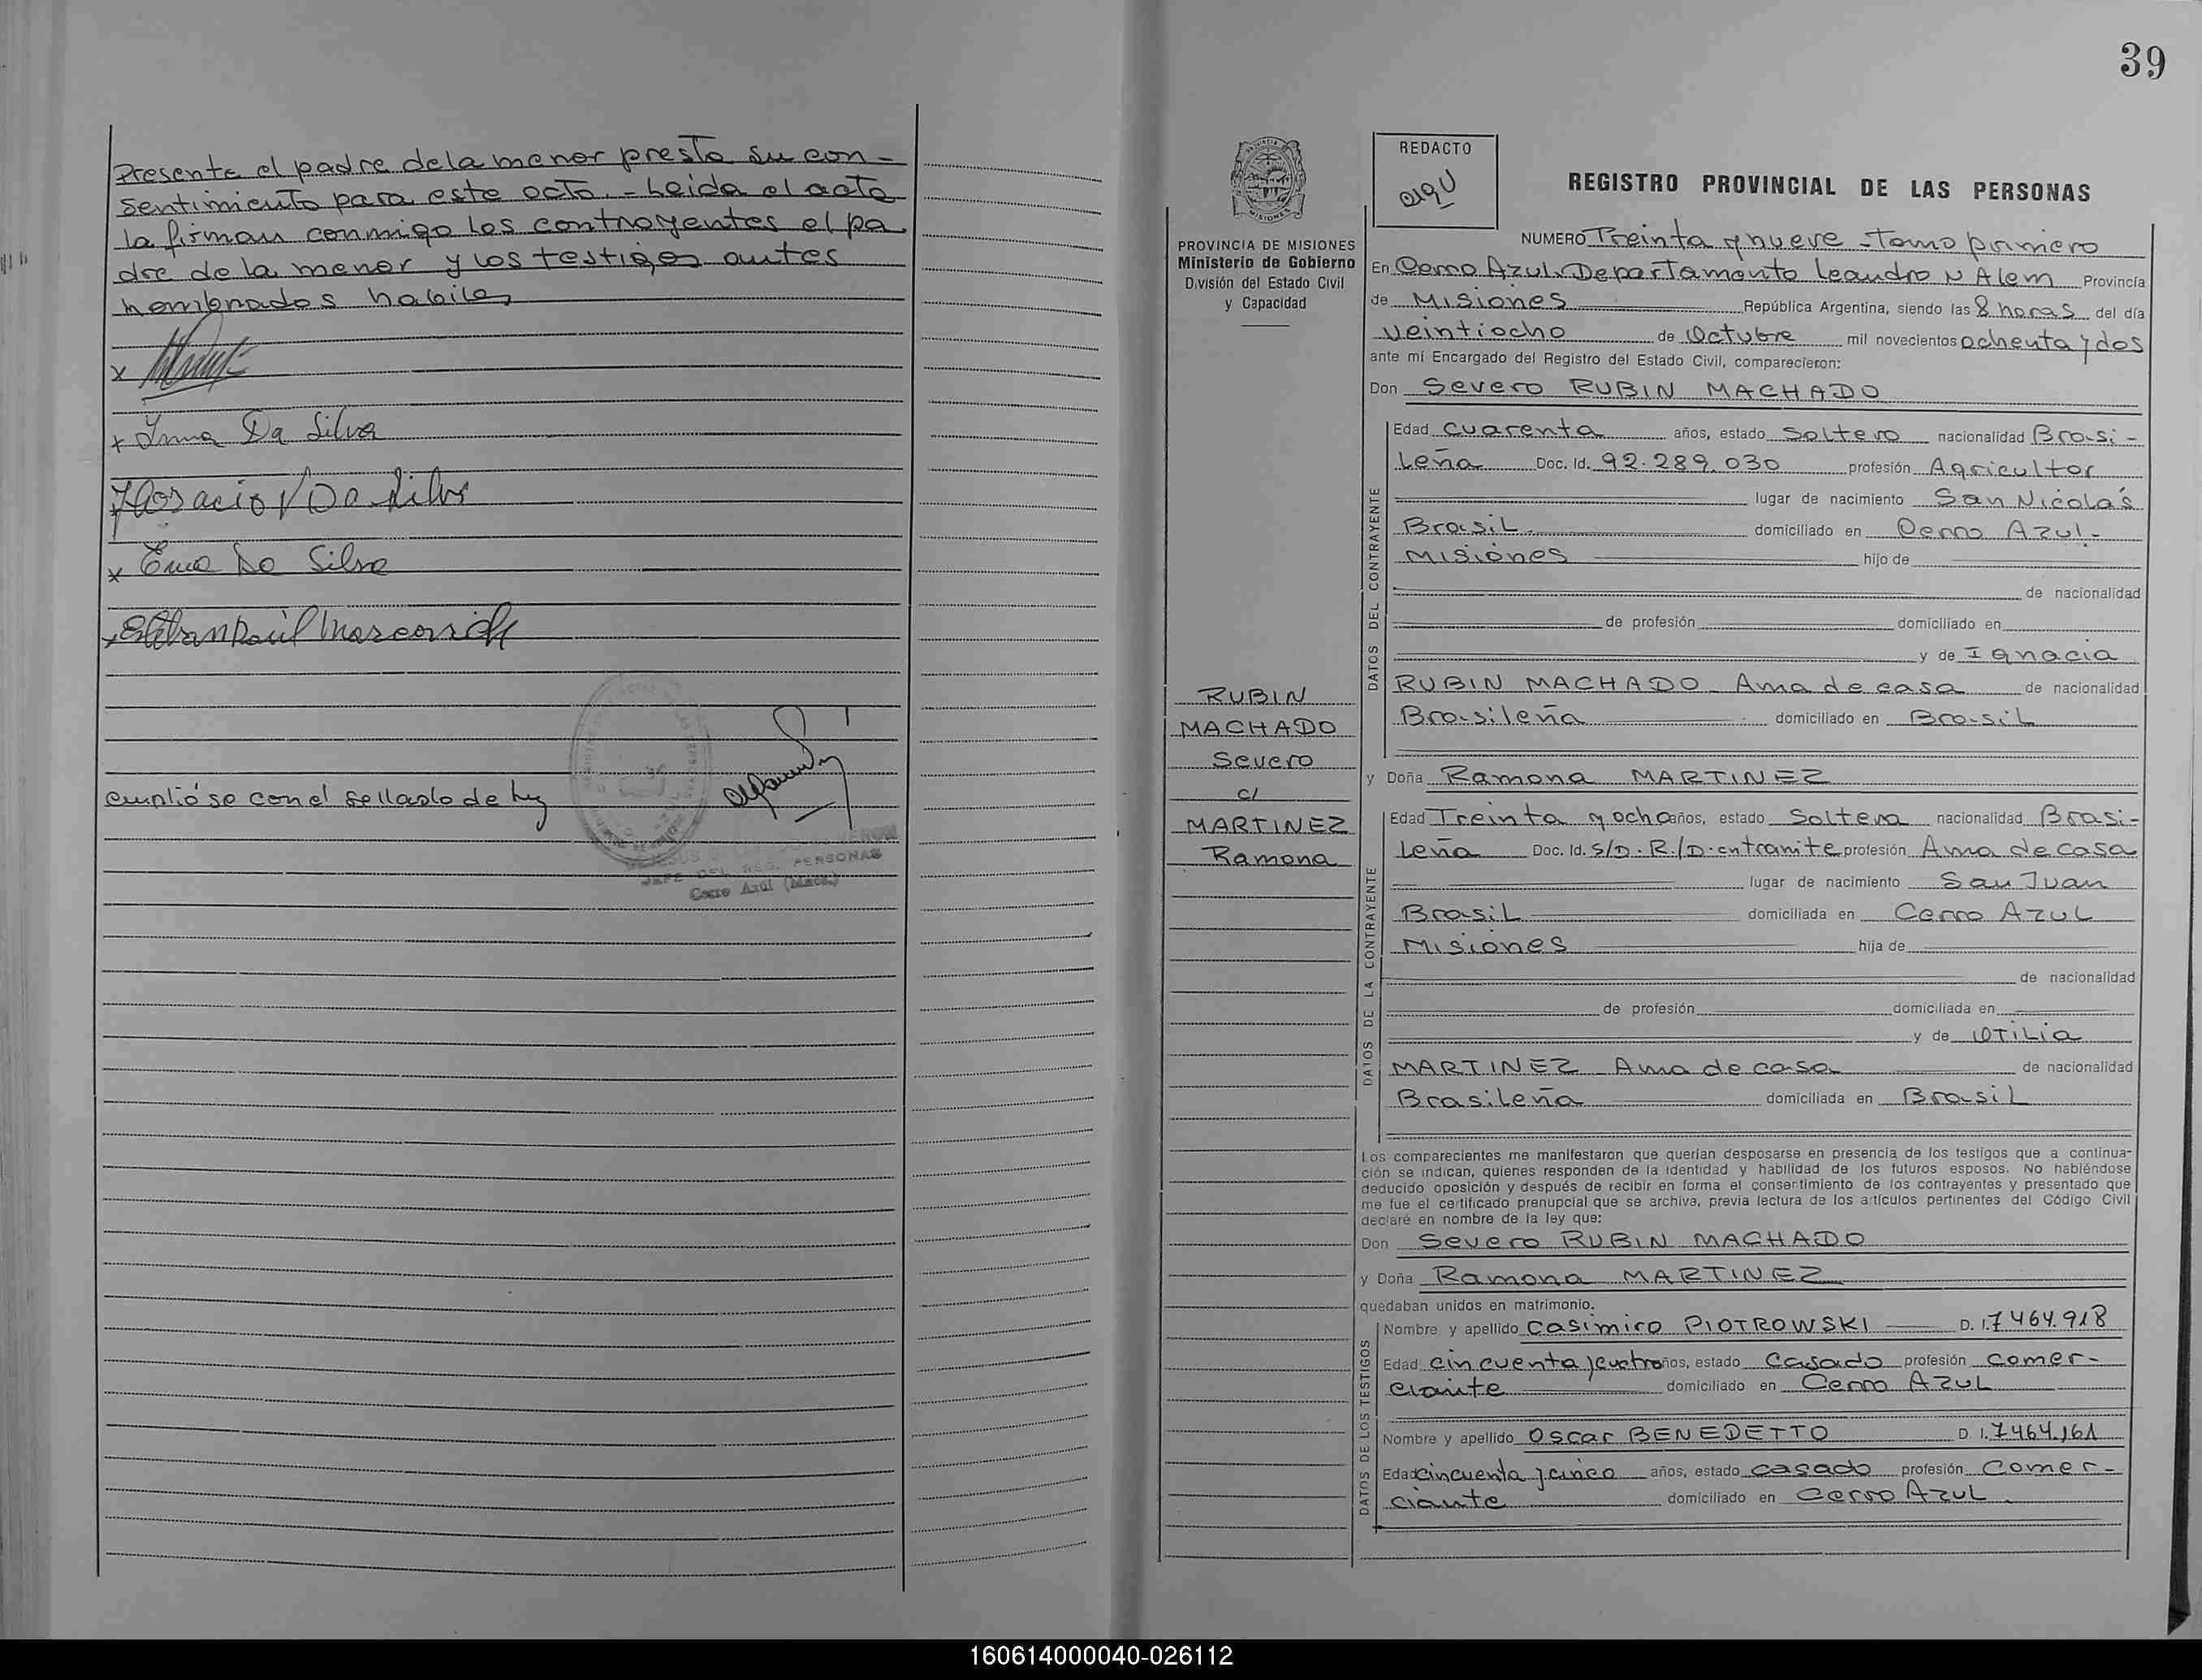 Presente el padre de la menor presta su con-
sentimiento para este acto. - Leida el acta
la firman conmigo los contrayentes el pa
dre de la menor y los testigos antes
nombrados habiles
x
x Irma Da Silva
x Horacio V Da Silva
x Ema Da Silva
x Esteban Raúl
cumplióse con el sellado de ley
JEFE DEL REG. PERSONAS
Cerro Azul (Mnes.)
39
PROVINCIA DE MISIONES
Ministerio de Gobierno
División del Estado Civil
y Capacidad
RUBIN
MACHADO
Severo
c/
MARTINEZ
Ramona
REDACTO
REGISTRO PROVINCIAL DE LAS PERSONAS
NUMERO Treinta y nueve - Tomo primero
En Cerro Azul, Departamento Leandro N Alem Provincia
de Misiones República Argentina, siendo las 8 horas del día
veintiocho de Octubre mil novecientos ochenta y dos
ante mí Encargado del Registro del Estado Civil, comparecieron:
Don Severo RUBIN MACHADO
DATOS DEL CONTRAYENTE
Edad cuarenta años, estado soltero nacionalidad Brasi-
leña Doc. Id. 92.289.030 profesión Agricultor
lugar de nacimiento San Nicolás
Brasil domiciliado en Cerro Azul-
Misiones hijo de
de nacionalidad
de profesión domiciliado en
y de Ignacia
RUBIN MACHADO - Ama de casa de nacionalidad
Brasileña domiciliado en Brasil
y Doña Ramona MARTINEZ
DATOS DE LA CONTRAYENTE
Edad Treinta y ocho años, estado Soltera nacionalidad Brasi-
leña Doc. Id. S/D. R./D. en tramite profesión Ama de casa
lugar de nacimiento San Juan
Brasil domiciliada en Cerro Azul
Misiones hija de
de nacionalidad
de profesión domiciliada en
y de Otilia
MARTINEZ - Ama de casa de nacionalidad
Brasileña domiciliada en Brasil
Los comparecientes me manifestaron que querían desposarse en presencia de los testigos que a continua-
ción se indican, quienes responden de la identidad y habilidad de los futuros esposos. No habiéndose
deducido oposición y después de recibir en forma el consentimiento de los contrayentes y presentado que
me fue el certificado prenupcial que se archiva, previa lectura de los artículos pertinentes del Código Civil
declaré en nombre de la ley que:
Don Severo RUBIN MACHADO
y Doña Ramona MARTINEZ
quedaban unidos en matrimonio.
DATOS DE LOS TESTIGOS
Nombre y apellido Casimiro PIOTROWSKI D. I. 7464.918
Edad cincuenta y cuatro años, estado Casado profesión Comer-
ciante domiciliado en Cerro Azul
Nombre y apellido Oscar BENEDETTO D I. 7464.161
Edad cincuenta y cinco años, estado casado profesión Comer-
ciante domiciliado en Cerro Azul
160614000040-026112